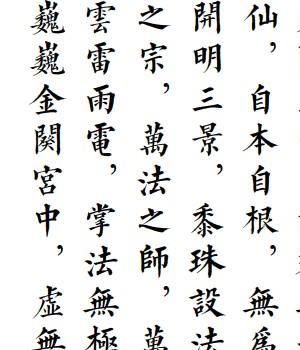 仙，自本自根，無爲
開明三景，黍珠設法
之宗，萬法之師，萬
雲雷雨電，掌法無極
巍巍金闕宮中，虛無